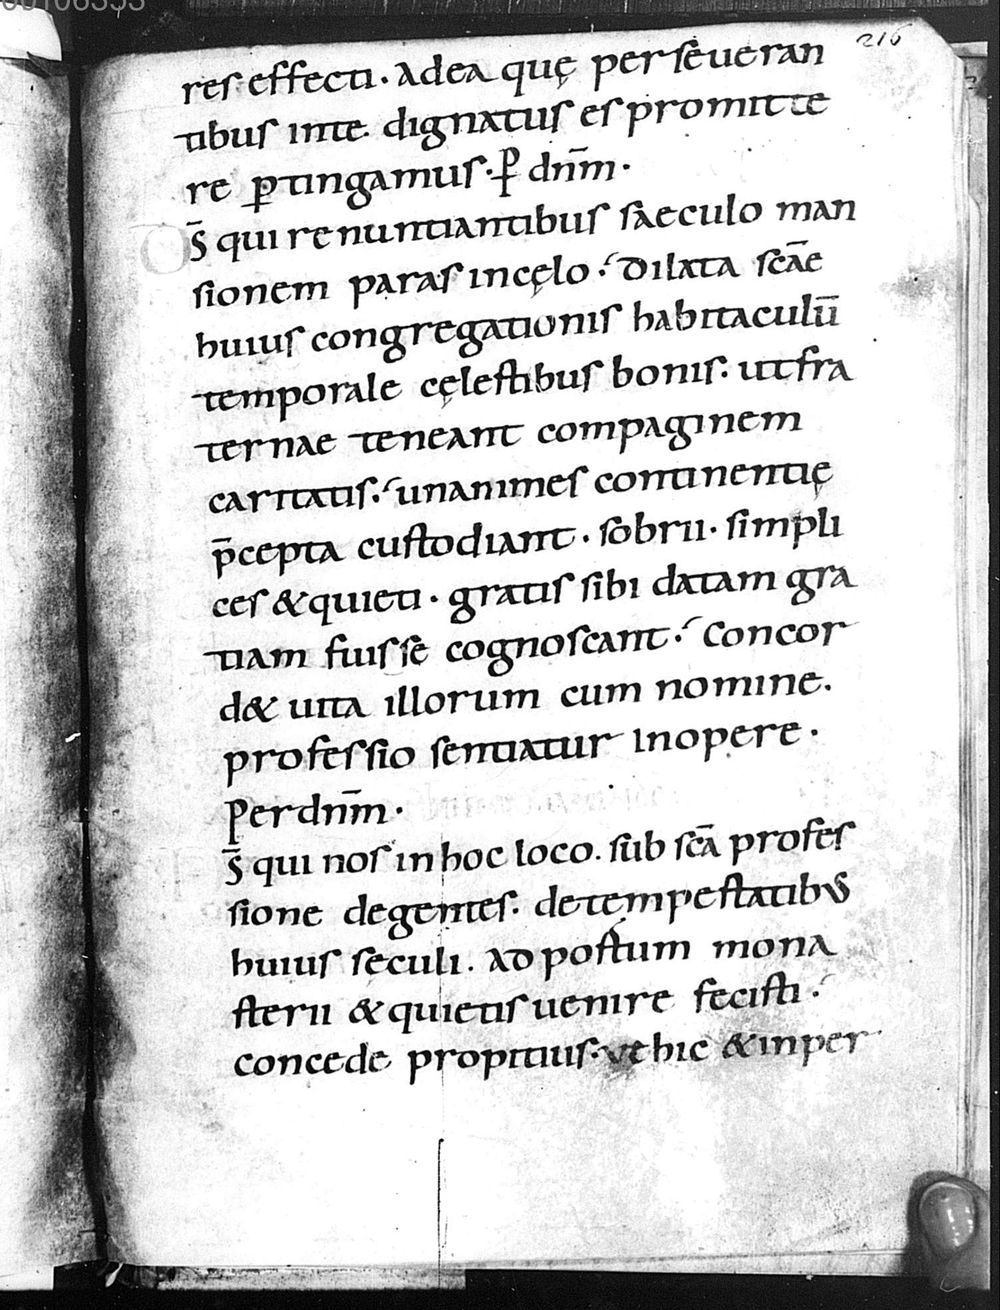 00106353
216
res effecti · ad ea quę perseueran
tibus in te dignatus es promitte
re p̱tingamus · ꝑ dn̄m ·
Os̄ qui renuntiantibus saeculo man
sionem paras in cęlo · dilata sc̄ae
huius congregationis habitaculū
temporale cęlestibus bonis · ut fra
ternae teneant compaginem
caritatis · unanimes continentię
p̄cepta custodiant · sobrii · simpli
ces & quieti · gratis sibi datam gra
tiam fuisse cognoscant · Concor
d& uita illorum cum nomine ·
professio sentiatur in opere ·
Per dn̄m ·
s̄ qui nos in hoc loco . sub sc̄a profes
sione degentes · de tempestatibus
huius seculi . ad postum mona
sterii & quietis uenire fecisti ·
concede propitius · ut hic & in per